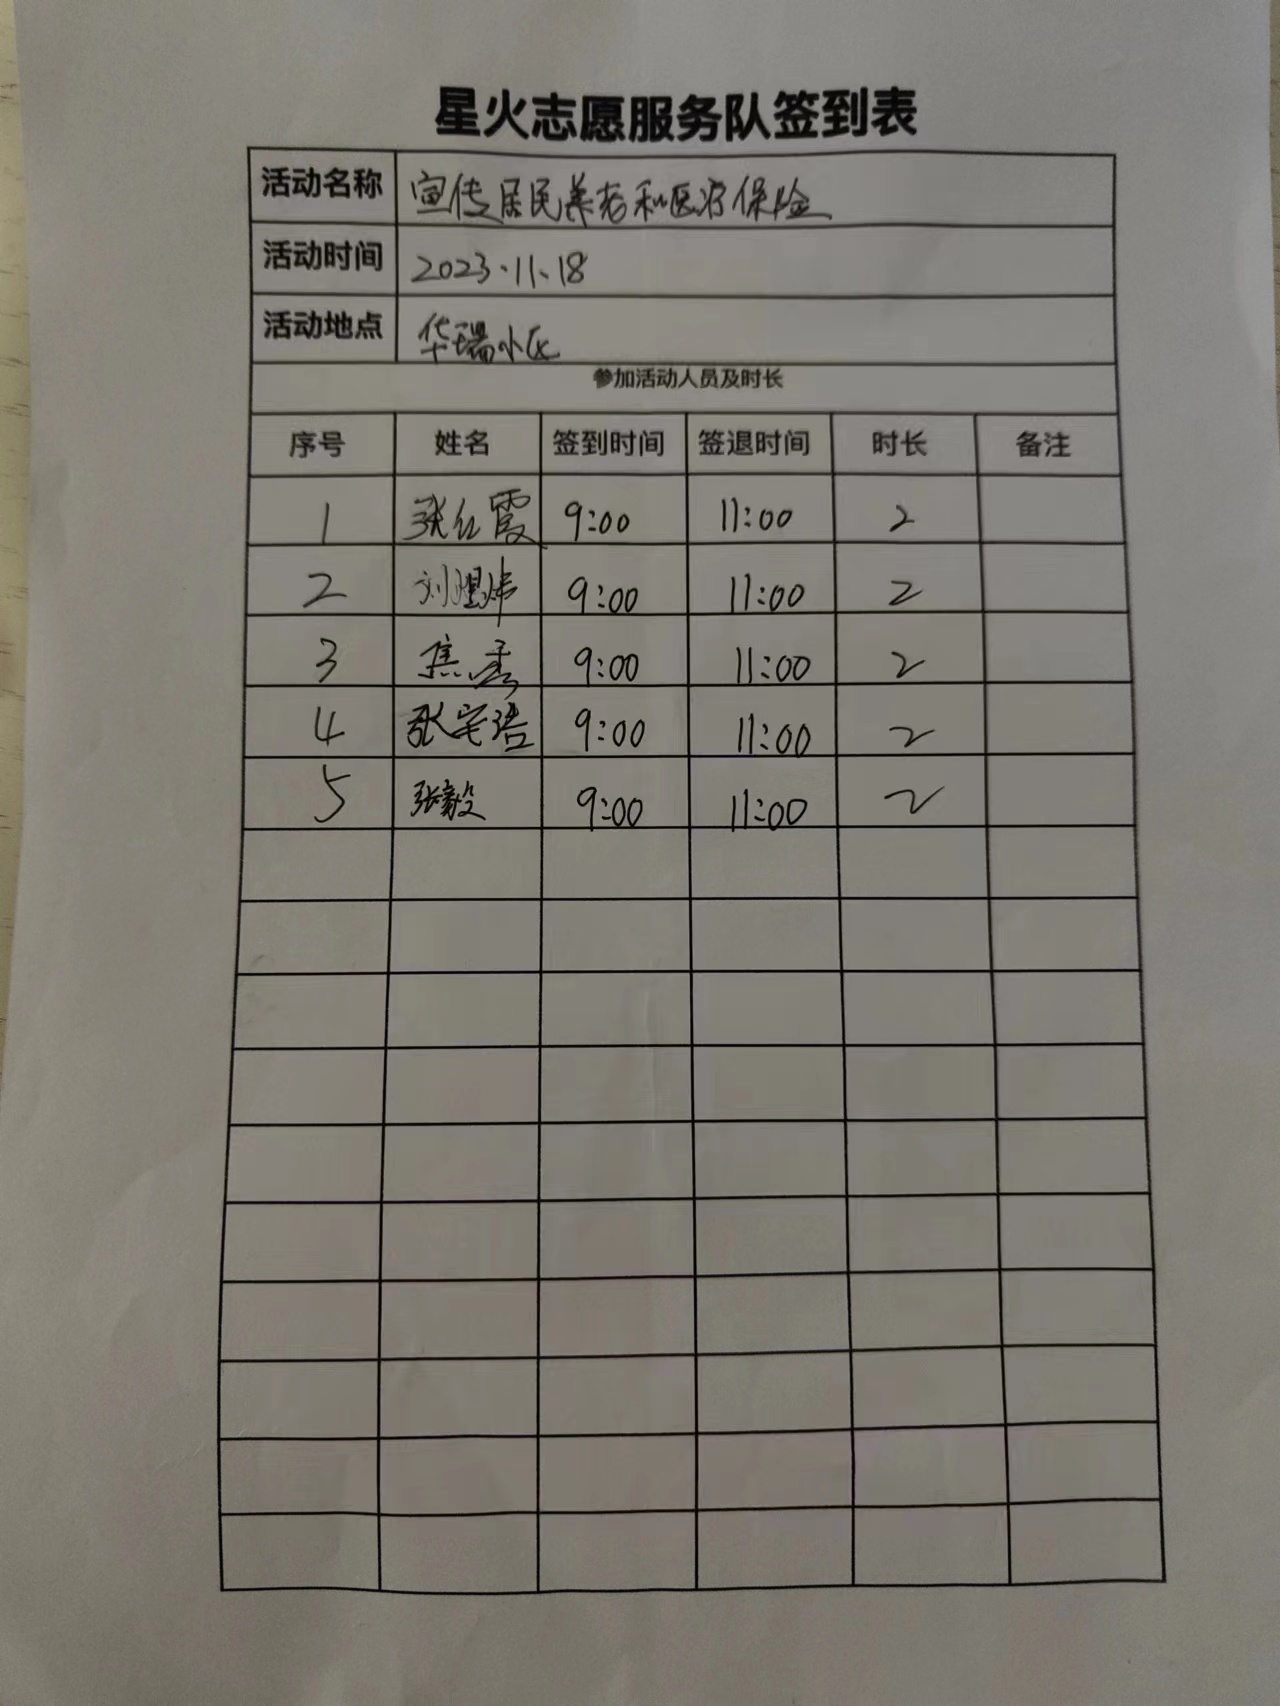 星火志愿服务队签到表
活动名称 宣传居民养老和医疗保险
活动时间 2023.11.18
活动地点 华瑞小区
参加活动人员及时长
序号 姓名 签到时间 签退时间 时长 备注
1 张红霞 9:00 11:00 2
2 刘 9:00 11:00 2
3 焦 9:00 11:00 2
4 张宅浩 9:00 11:00 2
5 张毅 9:00 11:00 2